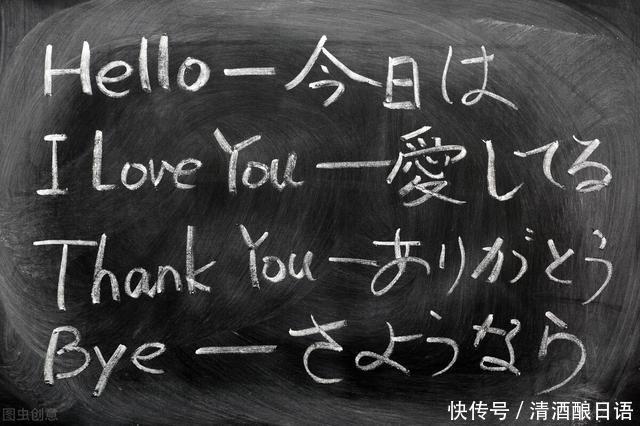 Hello — 今日は
I Love You — 愛してる
Thank You — ありがとう
Bye — さようなら
图虫创意
快传号 / 清酒酿日语